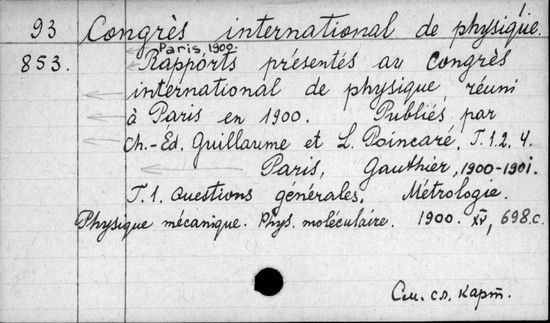 93 Congrès international de physique.
Paris, 1900.
853. Rapports présentés au congrès
international de physique, réuni
à Paris en 1900. Publiés par
Ch.-Éd. Guillaume et L. Poincaré, T.1.2. 4.
Paris, Gauthier, 1900-1901.
T.1. Questions générales. Métrologie.
Physique mécanique. Phys. moléculaire. 1900. XV, 698.c.
См. сл. карт.